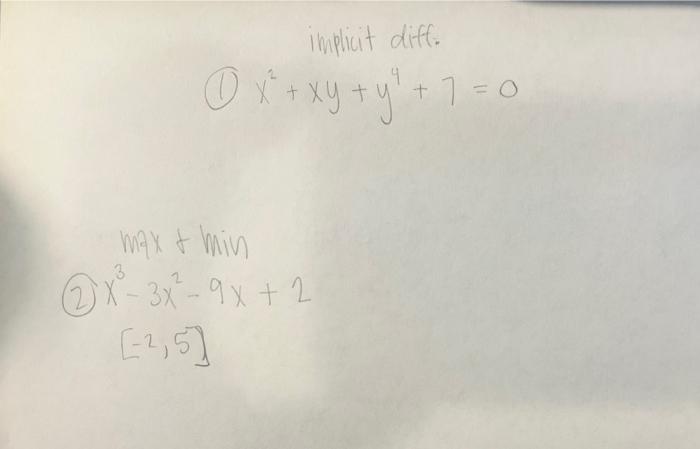 implicit diff.
① x² + xy + y⁴ + 7 = 0
max + min
② x³ - 3x² - 9x + 2
[-2, 5]